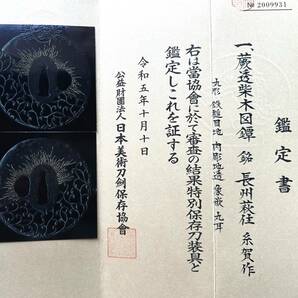 № 2009931
鑑定書
一、蕨透柴木図鐔 銘 長州萩住 糸賀作
丸形 鉄槌目地 肉彫地透 象嵌 丸耳
右は當協會に於て審査の結果特別保存刀装具と
鑑定しこれを証する
令和五年十月十日
公益財団法人 日本美術刀剣保存協會